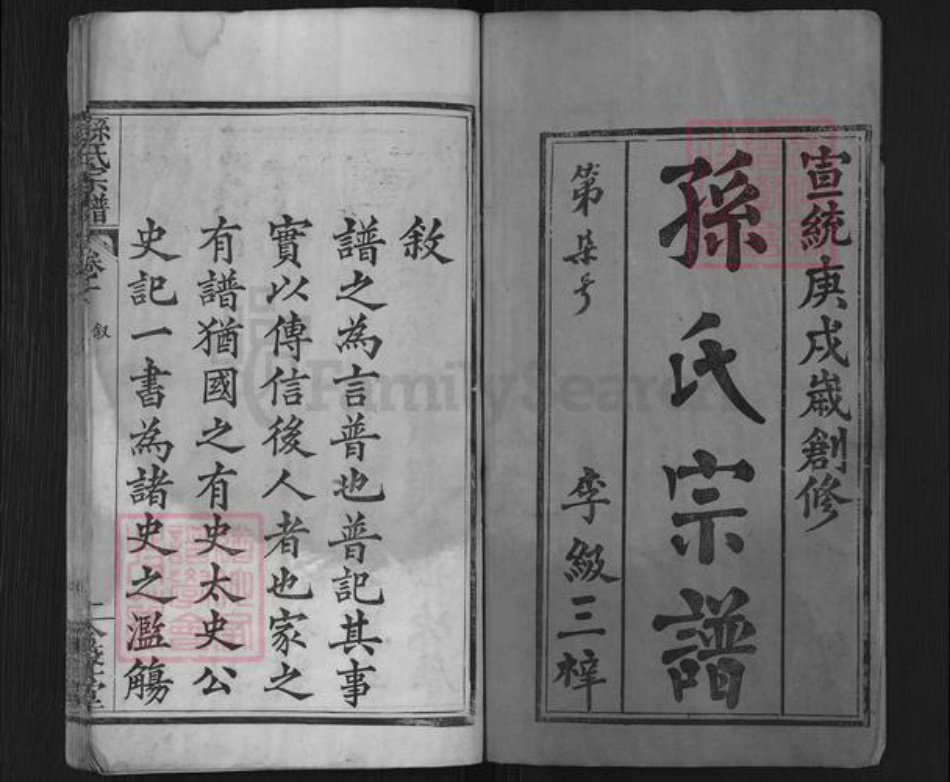 宣統庚戌歲創修
孫氏宗譜
第柒号
李級三梓
敘
譜之為言普也普記其事
實以傳信後人者也家之
有譜猶國之有史太史公
史記一書為諸史之濫觴
孫氏宗譜
敘
FamilySearch